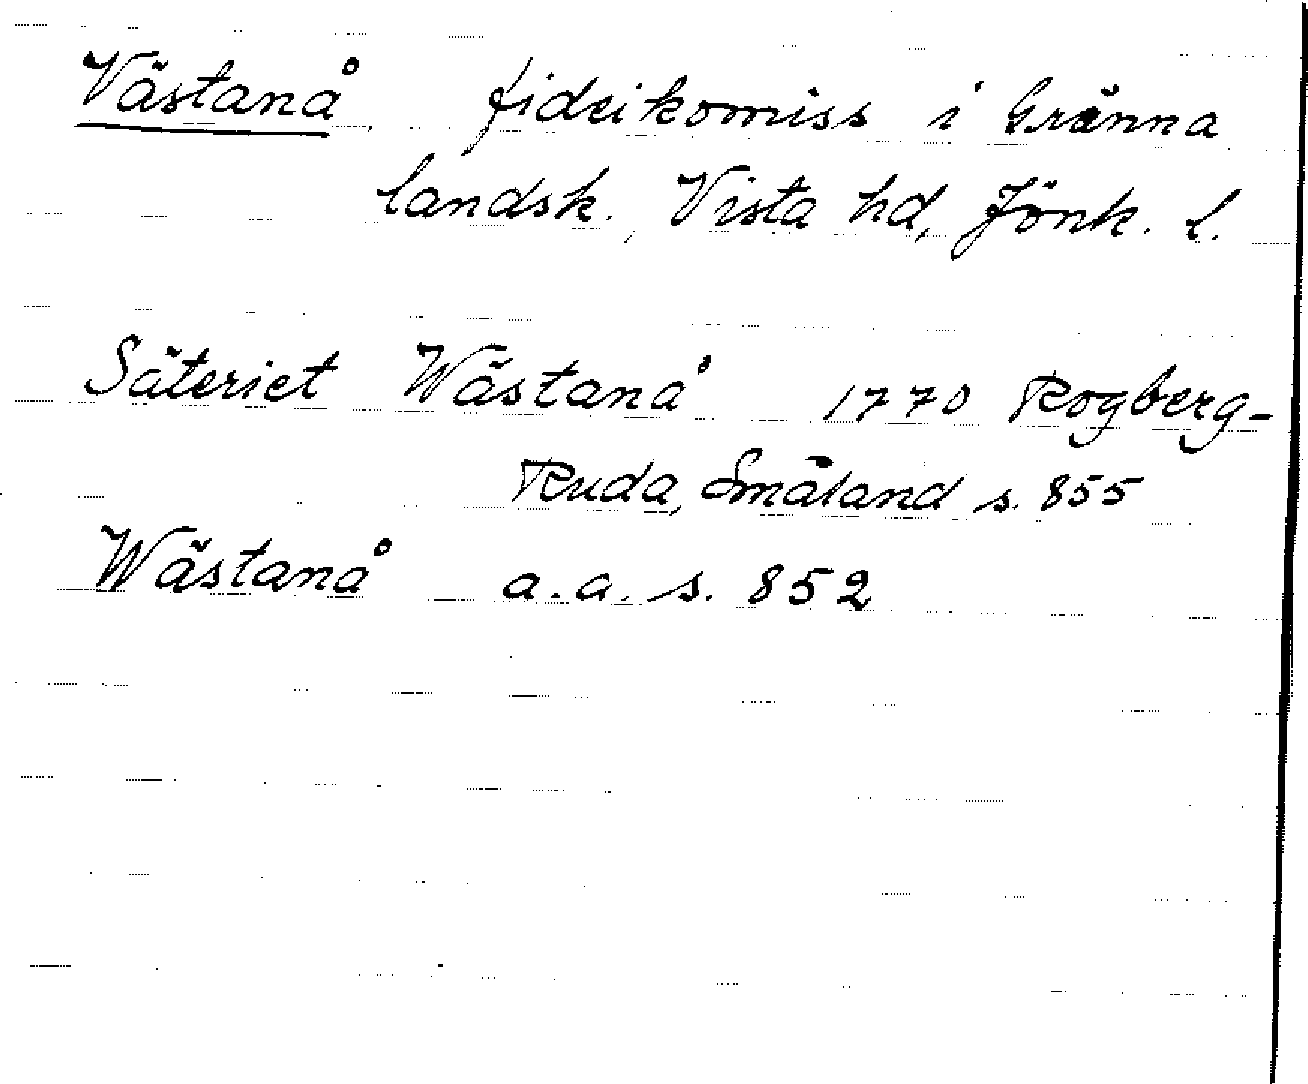 Västanå, fideikomiss i Gränna
landsk., Vista hd, Jönk. l.
Säteriet Wästanå 1770 Rogberg-
Ruda, Småland s. 855
Wästanå a.a. s. 852